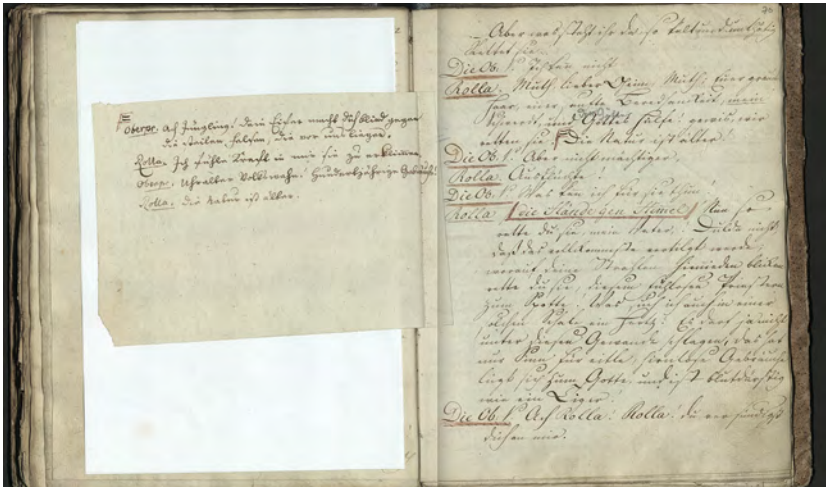 Oberpr. Ach Jüngling! dein Eifer macht dich blind gegen
die steilen Felsen, die vor uns liegen.
Rolla. Ich fühle Kraft in mir sie zu erklimmen.
Oberpr. Uhralter Volkswahn! Hundertjährige Gebräuche!
Rolla. Die Natur ist älter.
70
Aber was steht ihr da so kalt und unthätig
Rettet sie.
Die Ob. Pr. Ich kan nicht.
Rolla. Muth, lieber Oheim, Muth; Euer graues
Haar, eure sanfte Beredsamkeit, mein
Schwerdt, und Gottes Hülfe! gewis, wir
retten sie! Die Natur ist älter!
Die Ob. Pr. Aber nicht mächtiger.
Rolla. Ausflüchte!
Die Ob. Pr. Was kan ich für sie thun!
Rolla (die Hände gen Himel) Nun so
rette du sie, mein Vater! Dulde nicht
daß das vollkommenste vertilgt werde,
worauf deine Strahlen hienieden blicken
rette du sie, diesem fühllosen Priestern
zum Spotte! Was, such ich auch in einer
solchen Schale ein Hertz! Es darf ja nicht
unter diesem Gewande schlagen, das hat
nur Sinn für eitle, sinnlose Gebräuche
lügt sich zum Gotte, und ist blutdürstig
wie ein Tiger!
Die Ob. Pr. Ach Rolla! Rolla! du versündigst
dich an mir.